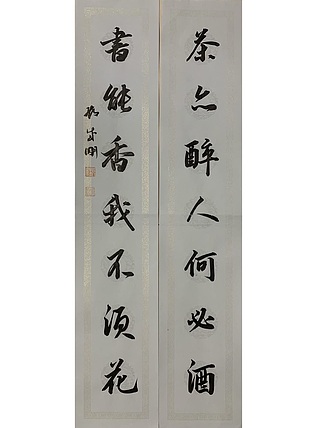 茶亦醉人何必酒
书能香我不须花